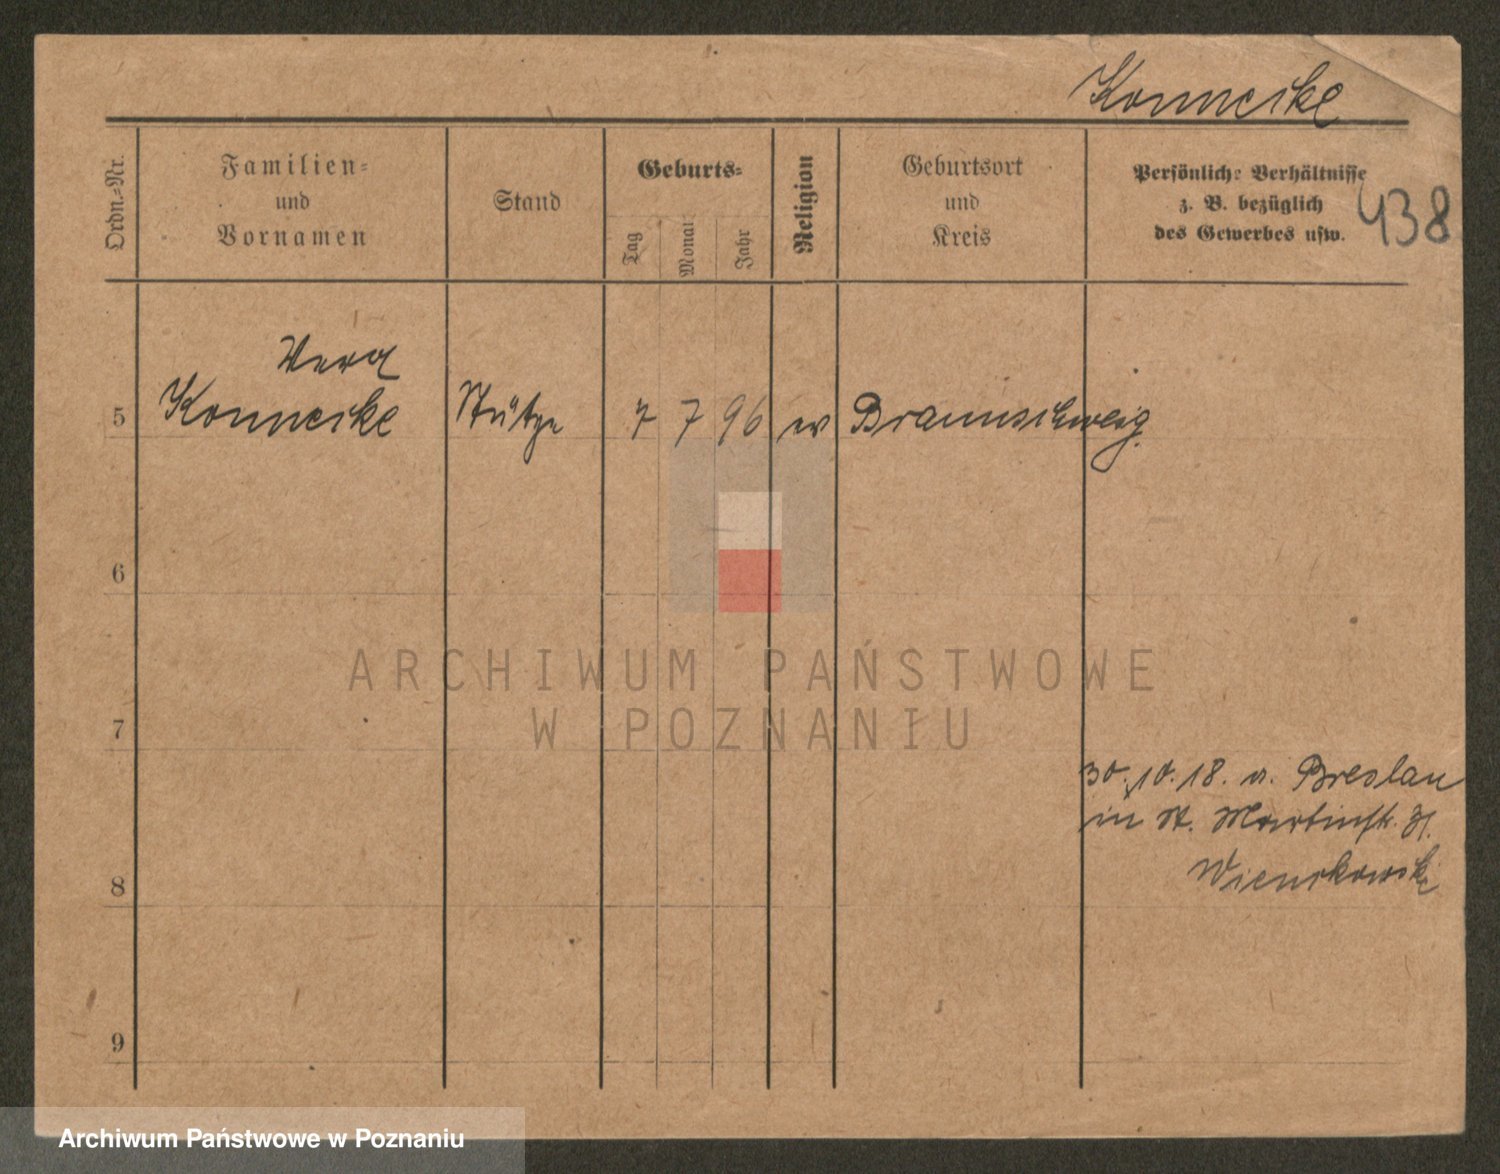 Konnecke
Ordn.-Nr.
Familien-
und
Vornamen
Stand
Geburts-
Tag
Monat
Jahr
Religion
Geburtsort
und
Kreis
Persönliche Verhältnisse
z. B. bezüglich
des Gewerbes usw.
438
Vera
5 Konnecke Stütze 7 7 96 ev Braunschweig
6
7
30.10.18. a. Breslau
in St. Martinstr. 31.
8
9
ARCHIWUM PAŃSTWOWE
W POZNANIU
Archiwum Państwowe w Poznaniu